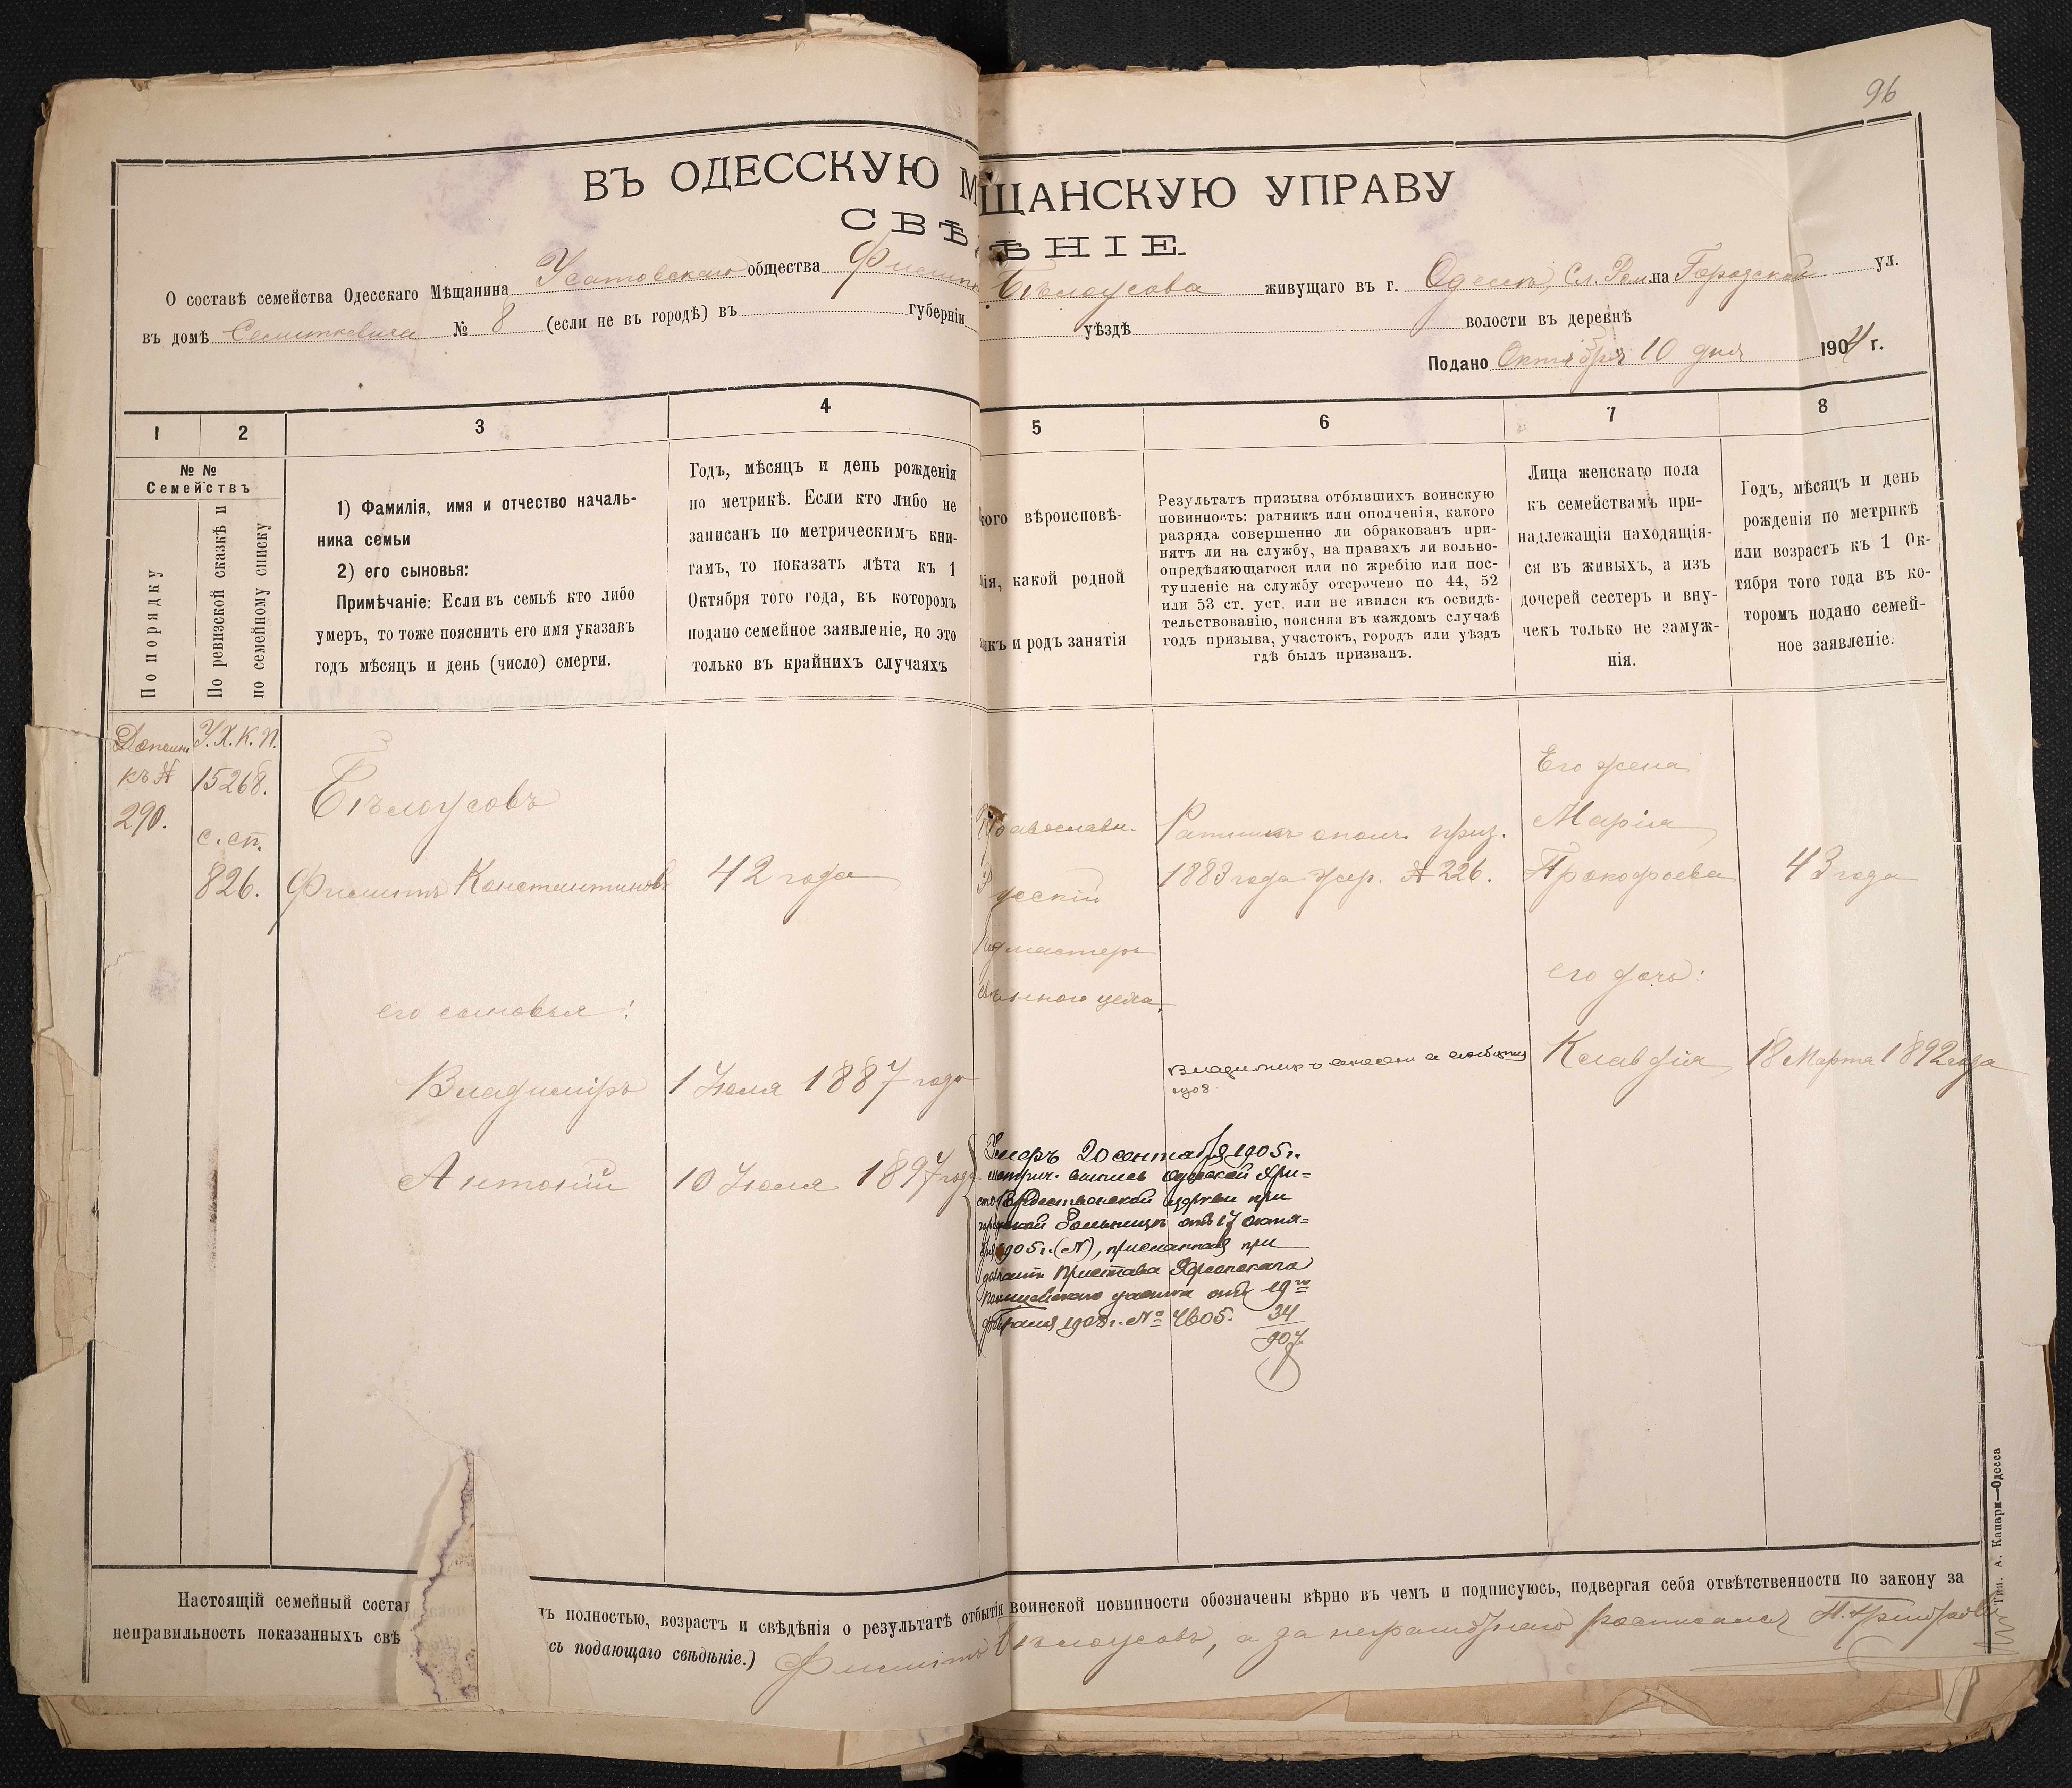 96
ВЪ ОДЕССКУЮ МѢЩАНСКУЮ УПРАВУ
СВѢДѢНІЕ.
О составѣ семейства Одесскаго Мѣщанина Усатовскаго общества Филиппа Бѣлоусова живущаго въ г. Одессѣ, Сл. Ром. на Городской ул.
въ домѣ № 8 (если не въ городѣ) въ губерніи уѣздѣ волости въ деревнѣ
Подано Октября 10 дня 1904 г.
1 2 3 4 5 6 7 8
№ №
Семействъ
По порядку
По ревизской сказкѣ и
по семейному списку
1) Фамилія, имя и отчество началь-
ника семьи
2) его сыновья:
Примѣчаніе: Если въ семьѣ кто либо
умеръ, то тоже пояснить его имя указавъ
годъ мѣсяцъ и день (число) смерти.
Годъ, мѣсяцъ и день рожденія
по метрикѣ. Если кто либо не
записанъ по метрическимъ кни-
гамъ, то показать лѣта къ 1
Октября того года, въ которомъ
подано семейное заявленіе, но это
только въ крайнихъ случаяхъ
кого вѣроисповѣ-
нія, какой родной
языкъ и родъ занятія
Результатъ призыва отбывшихъ воинскую
повинность: ратникъ или ополченія, какого
разряда совершенно ли обракованъ при-
нятъ ли на службу, на правахъ ли вольно-
опредѣляющагося или по жребію или пос-
тупленіе на службу отсрочено по 44, 52
или 53 ст. уст. или не явился къ освидѣ-
тельствованію, поясняя въ каждомъ случаѣ
годъ призыва, участокъ, городъ или уѣздъ
гдѣ былъ призванъ.
Лица женскаго пола
къ семействамъ при-
надлежащія находящія-
ся въ живыхъ, а изъ
дочерей сестеръ и вну-
чекъ только не замуж-
нія.
Годъ, мѣсяцъ и день
рожденія по метрикѣ
или возрастъ къ 1 Ок-
тября того года въ ко-
торомъ подано семей-
ное заявленіе.
Дополн.
къ №
290.
У.Х.К.П.
15268.
с. сп.
826.
Бѣлоусовъ
Филиппъ Константиновъ
42 года
Православн.
Русскій
Подмастеръ
цеха
Ратникъ ополч. приз.
1883 года жер. № 226.
Его жена
Марія
Прокофьева
43 года
его сыновья:
его дочь:
Владиміръ
1 Іюля 1887 года
Владимиръ
Клавдія
18 Марта 1892 года
Антоній
10 Іюля 1897 года
Умеръ 20 сентября 1905 г.
метрич. выпись Одесской Хри-
сторождественской церкви при
городской больницѣ отъ 17 октя-
бря 1905 г. (№), присланная при
Пристава Херсонскаго
Полицейскаго участка отъ 19го
февраля 1908 г. № 4605.
34
907
Настоящій семейный соста ъ полностью, возрастъ и свѣдѣнія о результатѣ отбытія воинской повинности обозначены вѣрно въ чемъ и подписуюсь, подвергая себя отвѣтственности по закону за
неправильность показанныхъ свѣ сь подающаго свѣдѣніе.) Филиппъ Бѣлоусовъ, а за неграмотнаго росписался
Тип. А. Капари—Одесса